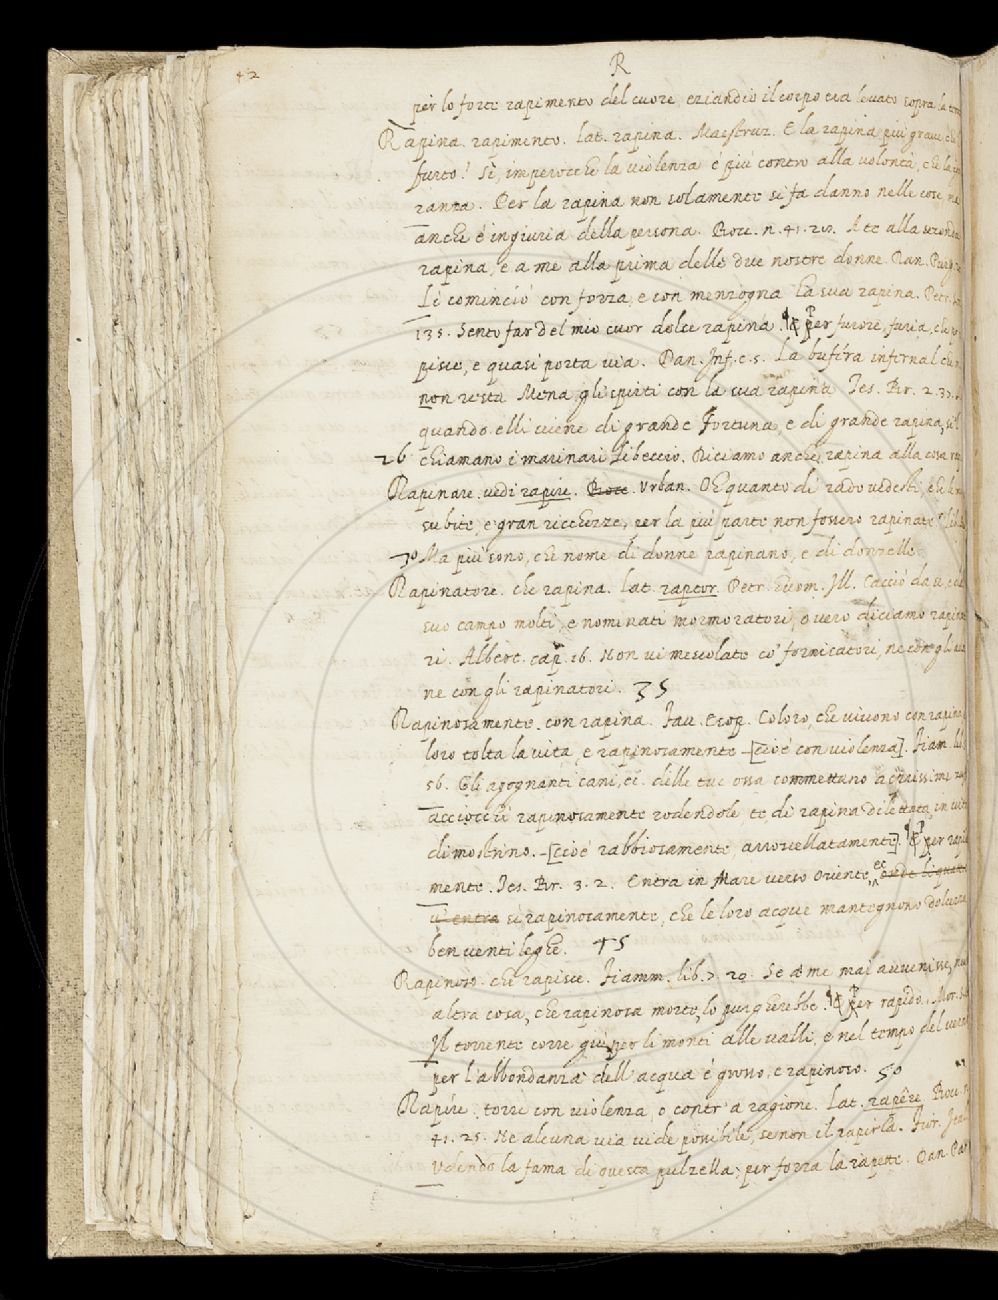 42
R
per lo forte rapimento del cuore, eziandio il corpo era levato sopra la
Rapina. rapimento. Lat. rapina. Maestruz. E la rapina più grave che
furto? Sì, imperocche la violenza è più contro alla volontà, che la
ranza. Per la rapina non solamente si fa danno nelle cose, ma
anche è ingiuria della persona. Bocc. n. 41. 20. A te alla seconda
rapina, e a me alla prima delle due nostre donne. Dan. Purg.
Lì cominciò con forza, e con menzogna La sua rapina. Petr.
135. Sento far del mio cuor dolce rapina. ¶ per furore, furia, che
pisce, e quasi porta via. Dan. Inf. c. 5. La bufera infernal che
non resta Mena gli spirti con la sua rapina Tes. Br. 2. 37.
quando elli viene di grande fortuna, e di grande rapina, sì l
26 chiamano i marinari Libeccio. Diciamo anche rapina alla cosa
Rapinare. vedi rapire. Bocc. Urban. O quanto di rado vedesti, che le
subite, e gran ricchezze, per la più parte non fossero rapinate?
30 Ma più sono, che nome di donne rapinano, e di donzelle
Rapinatore. che rapina. Lat. raptor. Petr. uom. Ill. Cacciò da se,
suo campo molti, e nominati mormoratori, ovvero diciamo
ri. Albert. cap. 16. Non vi mescolate co' fornicatori, ne con gli
ne con gli rapinatori. 35
Rapinosamente. con rapina. Fav. Esop. Coloro, che vivono con rapina,
loro tolta la vita, e rapinosamente -[cioè con violenza]. Fiam. lib.
56. Gli agognanti cani, ec. delle tue ossa commettano asprissime
acciocche rapinosamente rodendole, te, di rapina dilettata, in
dimostrino. -[cioè rabbiosamente, arrovellatamente]. ¶ per
mente. Tes. Br. 3. 2. Entra in Mare verso Oriente, ec
vi entra sì rapinosamente, che le loro acque mantegnono dolcezza
ben venti leghe. 45
Rapinoso. che rapisce. Fiamm. lib. 7. 20. Se a me mai avvenisse,
altra cosa, che rapinosa morte, lo purgherebbe. ¶ per rapido. Mor.
Il torrente corre giù per li monti alle valli, e nel tempo del
per l'abbondanza dell' acqua è grosso, e rapinoso. 50
Rapire. torre con violenza, o contr' a ragione. Lat. rapĕre. Bocc.
41. 25. Ne alcuna via vide possibile, se non il rapirla. Fior.
Udendo la fama di questa pulzella, per forza la rapette. Dan.